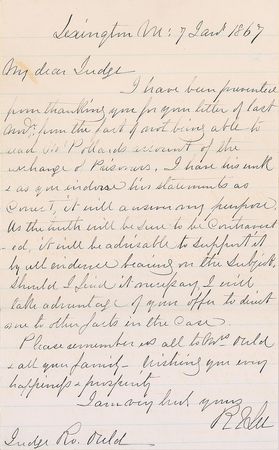 Lexington Va: 7 Jany 1867
My dear Judge
I have been prevented
from thanking you for your letter of last
from the fact of not being able to
read Mr Pollards account of the
exchange of Prisoners, I have his work
& as you endorse his statements as
correct, it will answer my purpose.
As the truth will be sure to be controvert
-ed, it will be advisable to support it
by all evidence bearing on the subject,
Should I find it necessary, I will
take advantage of your offer to direct
me to other facts in the case.
Please remember us all to Mrs Ould
& all your family- Wishing you every
happiness & prosperity
I am very truly yours
R E Lee
Judge Ro. Ould